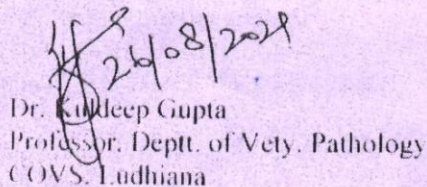 26/08/2021
Dr. Kuldeep Gupta
Professor, Deptt. of Vety. Pathology
COVS, Ludhiana